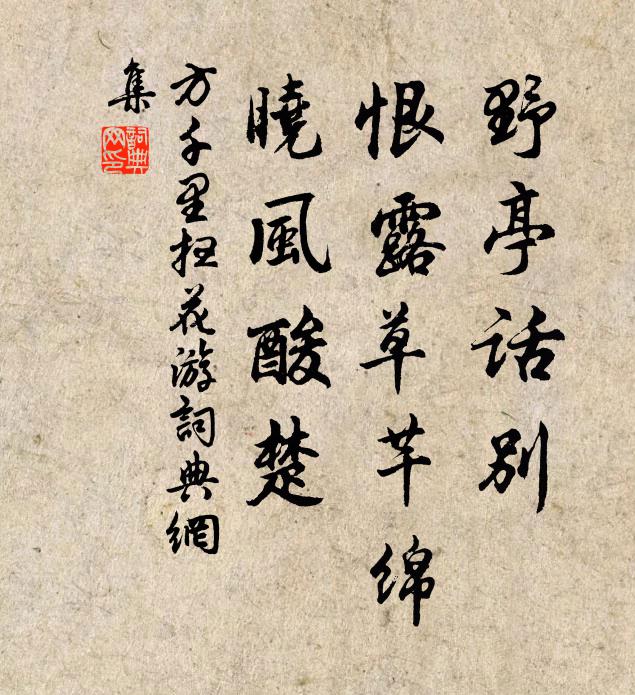 野亭话别
恨露草芊绵
曉風酸楚
方千里扫花游詞典網
集
詞典
网印